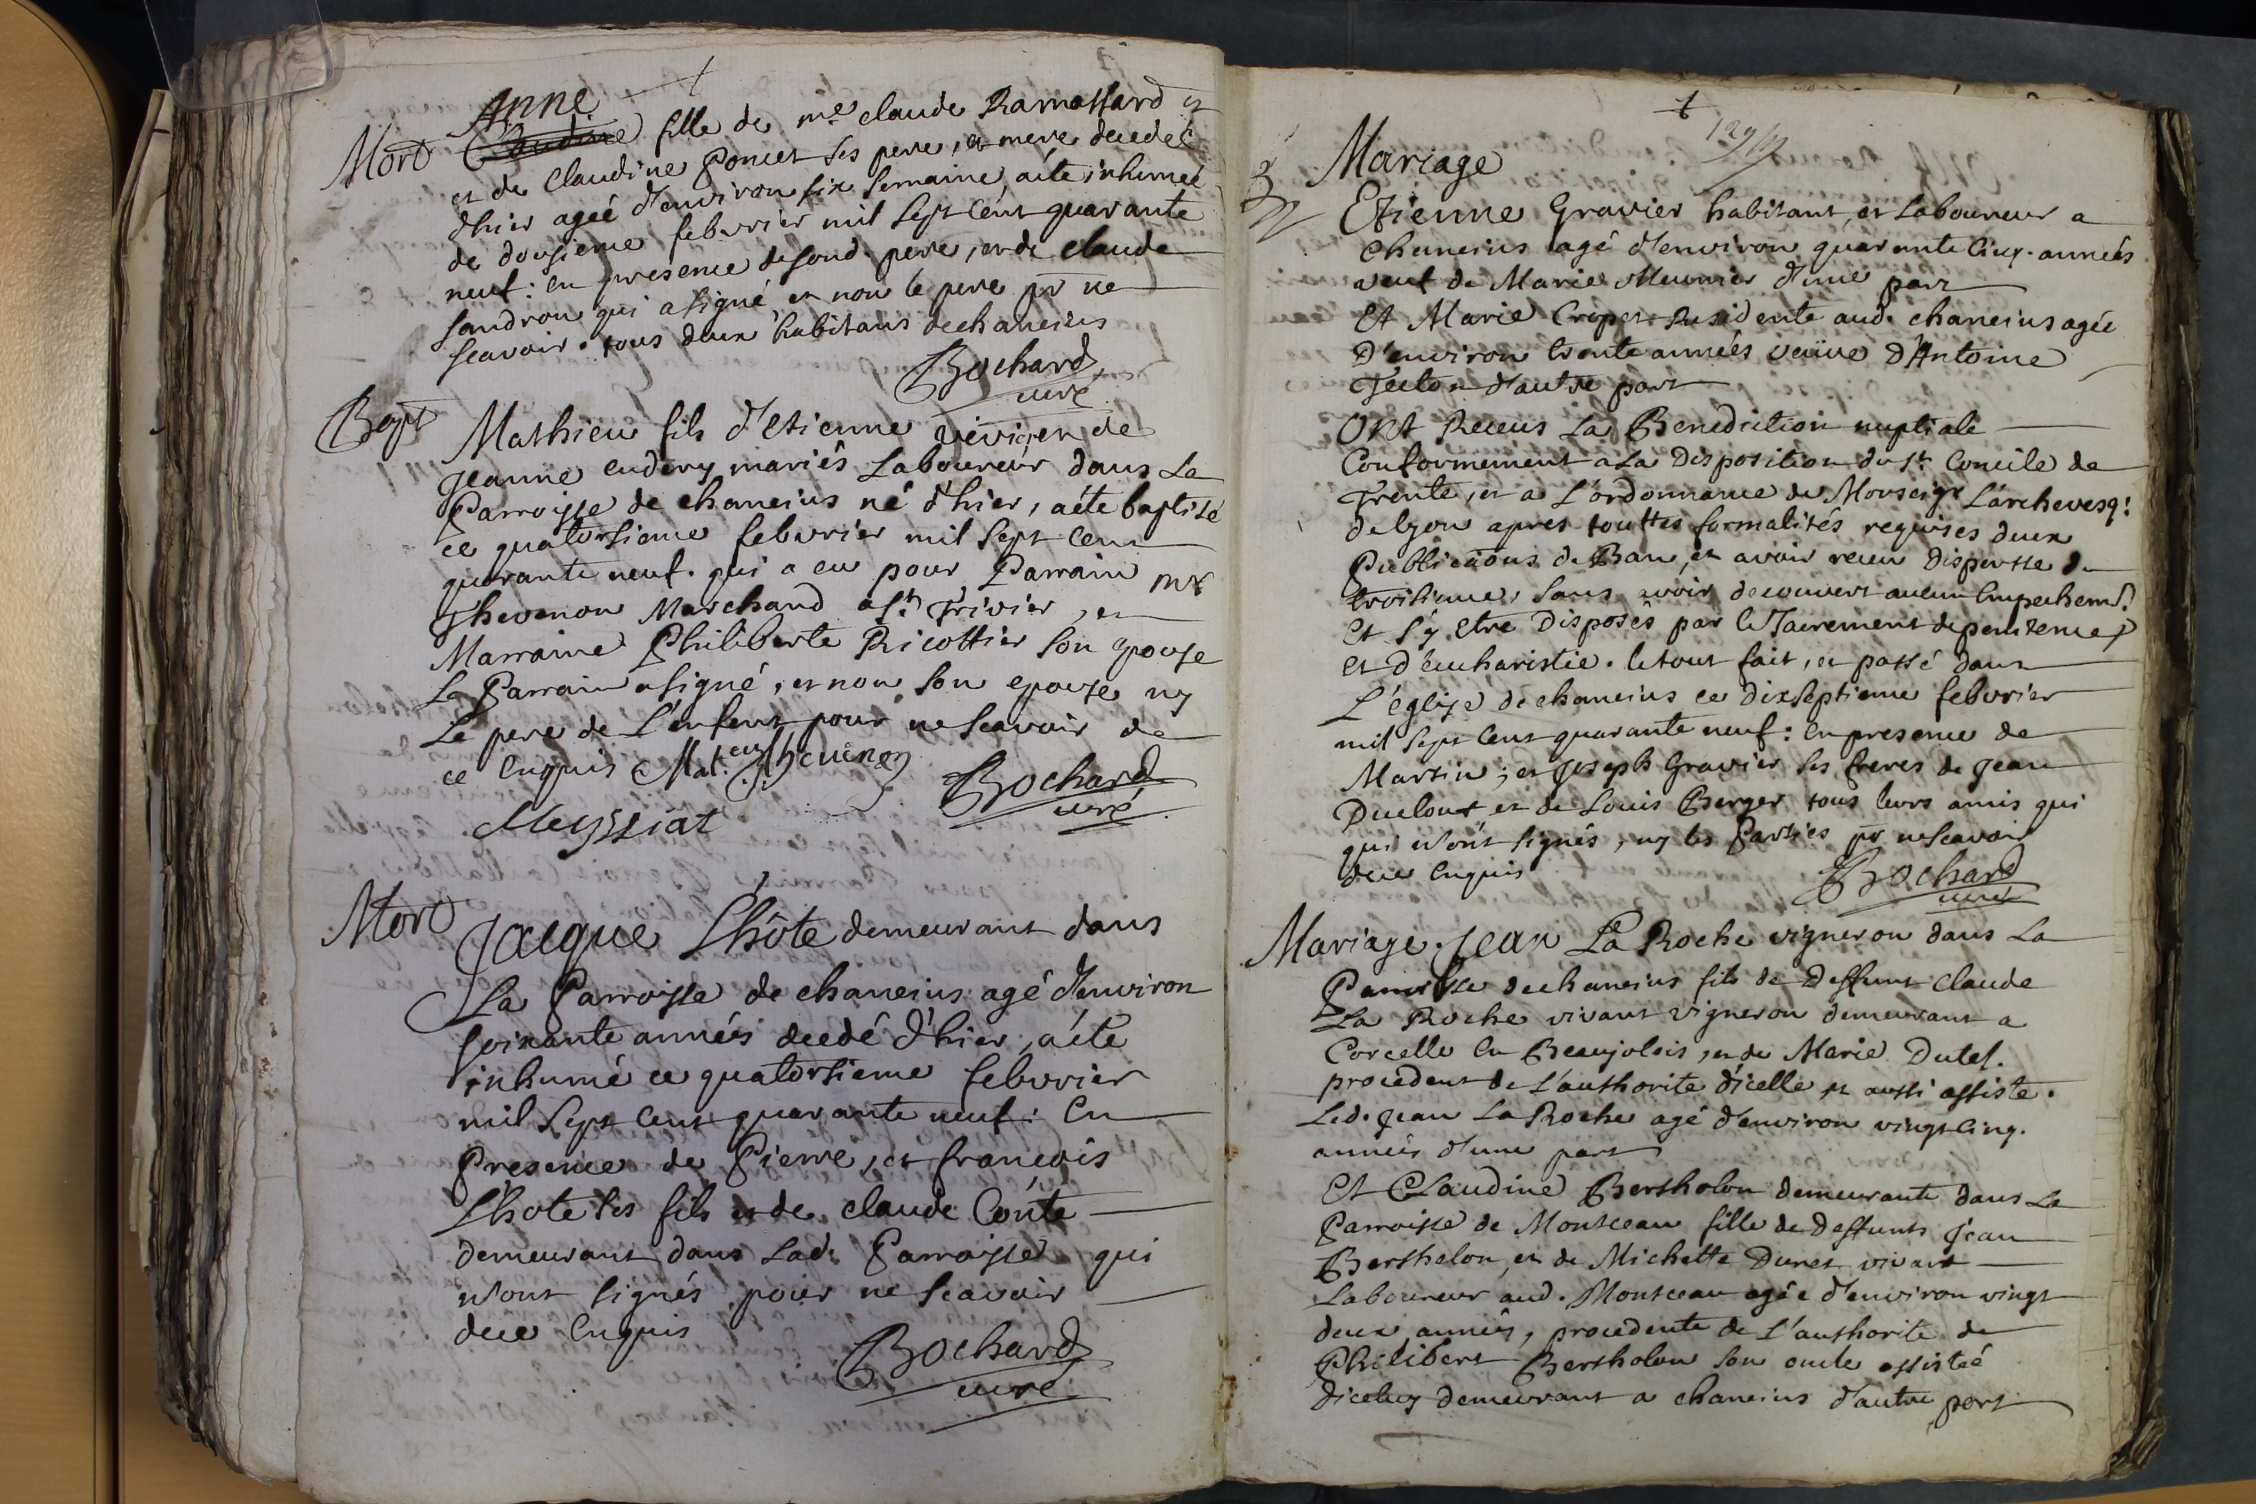 Mort Anne
Claudine fille de me claude Ramassard et
et de Claudine Poncet ses pere, et mere decedeé
d'hier ageé d'environ six semaine, a éte inhumeé
de dousieme febvrier mil sept cent quarante
neuf: en presence desond. pere, et de claude
sandron qui a signé et non le pere pr ne
scavoir. tous deux habitans de chaneins
Bochard
curé
Bapt Mathieu fils d'etienne et de
Jeanne cudery mariés Laboureur dans La
Parroisse de chaneins né d'hier, a éte baptisé
ce quatorsieme febvrier mil sept cent
quarante neuf. qui a eu pour Parrain mr
Thevenon Marchand a st. Trivier, et
Marraine Philiberte Ricottier son epouse
Le Parrain a signé, et non son epouse ny
Le pere de L'enfent pour ne scavoir de
ce enquis Mat. Thevenon
Bochard
curé
Meyssiat
Mort Jacque Lhôte demeurant dans
La Parroisse de chaneins agé d'environ
soixante années decedé d'hier, a éte
inhumé ce quatorsieme febvrier
mil sept cent quarante neuf: en
Presence de Pierre, et francois
Lhote ses fils et de claude Conte
demeurant dans Lad. Parroisse qui
n'ont signés pour ne scavoir
dece enquis
Bochard
curé
Mariage
Etienne Gravier habitant, et Laboureur a
Chaneins agé d'environ quarante cinq. années
veuf de Marie Meunier d'une part
Et Marie Cropet Residente aud. chaneins agée
D'environ trente années veuve d'Antoine
d'autre part
Ont Receus La Benediction nuptiale
Conformement a La Disposition du st. Concile de
Trente, et a L'ordonnance de Monseigr L'archevesq:
de lyon apres touttes formalités requises deux
Publications de Ban, et avoir receu dispensse du
troisieme, sans avoir decouvert aucun Empechemt.
Et s'y etre Disposés par le sacrement de penitence
et d'eucharistie. le tout fait, et passé dans
L'église de chaneins ce dixseptieme febvrier
mil sept cent quarante neuf: en presence de
Martin; et Joseph Gravier ses freres de Jean
Duclour et de Louis Berger tous leurs amis qui
qui n'ont signés, ny les Parties pr ne scavoir
dece enquis
Bochard
curé
Mariage. Jean La Roche vigneron dans La
Parroisse de chaneins fils de Deffunt Claude
La Roche vivant vigneron demeurant a
Corcelle en Beaujolois, et de Marie Dutel.
procedent de L'authorite d'icelle et aussi assiste.
Led. Jean La Roche agé d'environ vingt cinq.
années d'une part
Et Claudine Bertholon demeurante dans La
Parroisse de Montceau fille de deffunts Jean
Berthelon, et de Michelle Dunet vivant
Laboureur aud. Montceau agée d'environ vingt
deux années, procedente de L'authorite de
Philibert Bertholon son oncle assisteé
d'iceluy demeurant a chaneins d'autre part